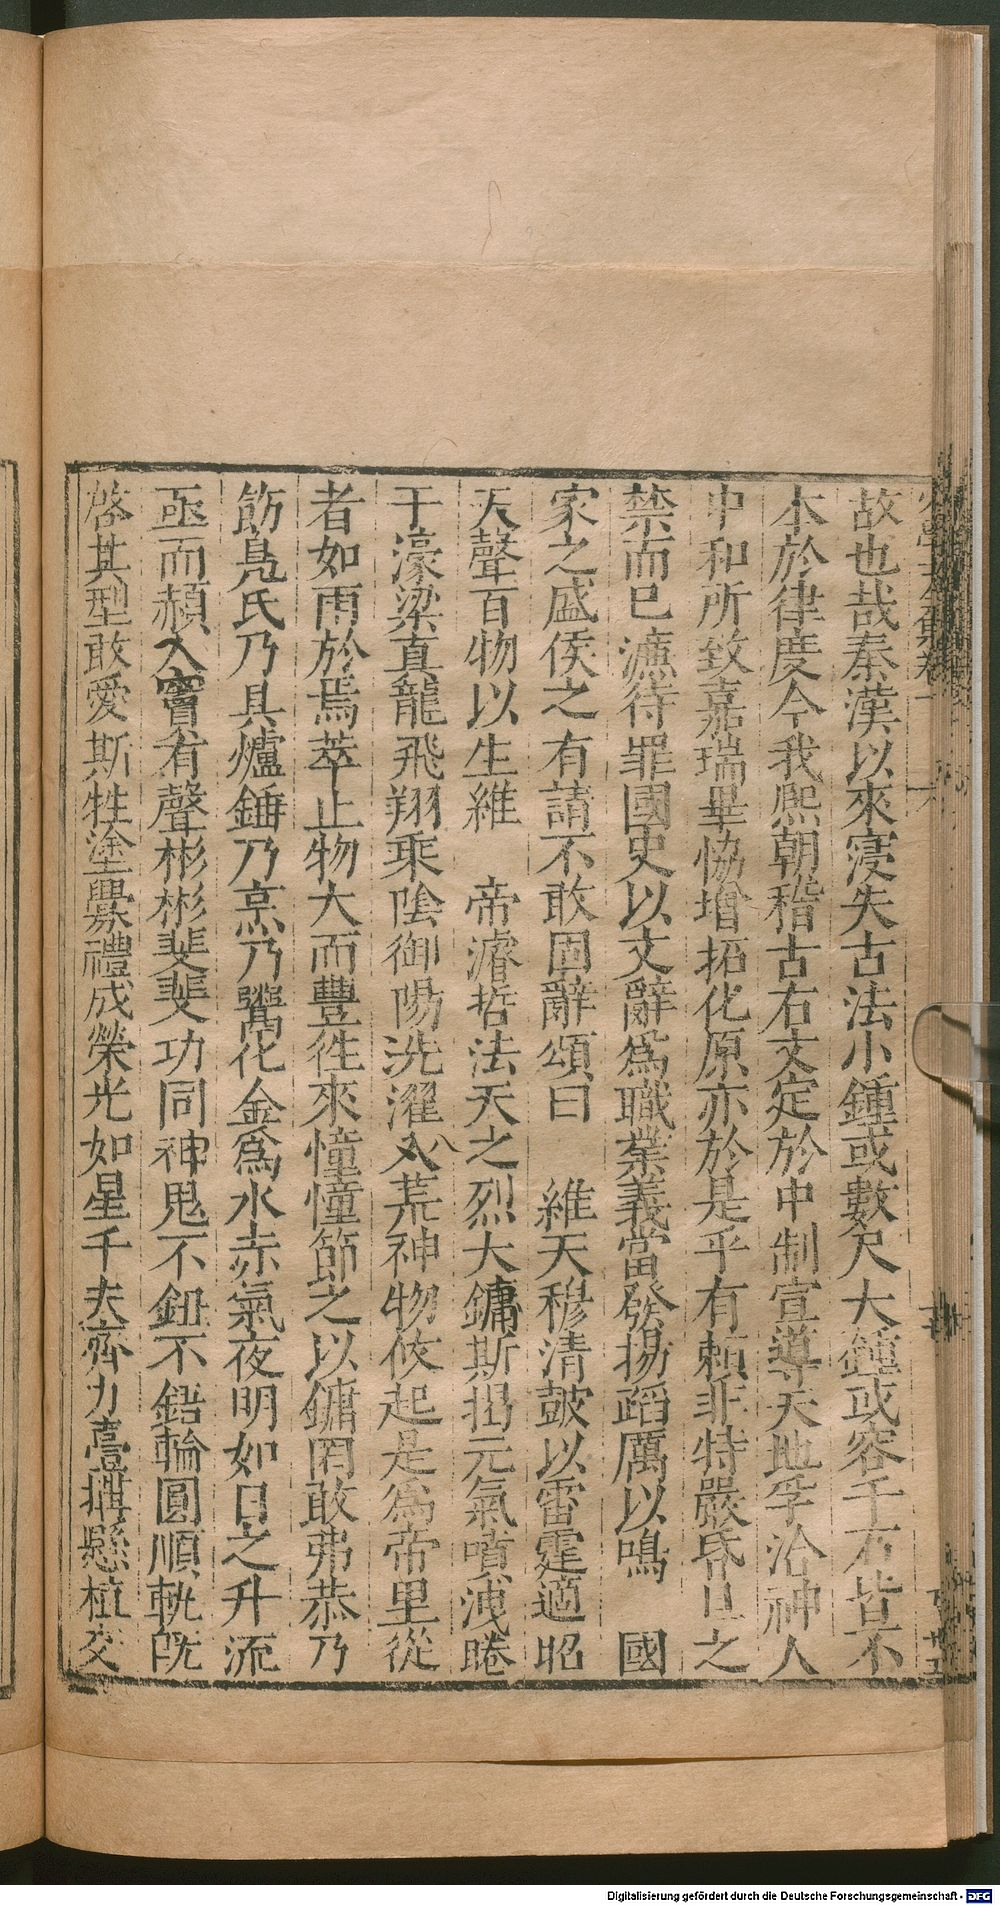 故也哉秦漢以來寖失古法小鍾或數尺大鍾或容千石皆不
本於律度今我熙朝稽古右文定於中制宣導天地孚洽神人
中和所致嘉瑞畢恊增拓化原亦於是乎有頼非特嚴昏旦之
禁而已濂待罪國史以文辭爲職業義當發揚蹈厲以鳴 國
家之盛侯之有請不敢固辭頌曰 維天穆清鼓以雷霆適昭
天聲百物以生維 帝濬哲法天之烈大鏞斯揭元氣噴洩睠
于濠梁真龍飛翔乘陰御陽洗濯八荒神物攸起是爲帝里從
者如雨於焉萃止物大而豐徃來憧憧節之以鏞罔敢弗恭乃
飭鳧氏乃具爐錘乃烹乃鬻化金爲水赤氣夜明如日之升流
亟而頳入竇有聲彬彬斐斐功同神鬼不鈕不鋙輪圓順軌旣
啓其型敢愛斯牲塗釁禮成榮光如星千夫齊力臺搆懸植交
卷一
Digitalisierung gefördert durch die Deutsche Forschungsgemeinschaft - DFG